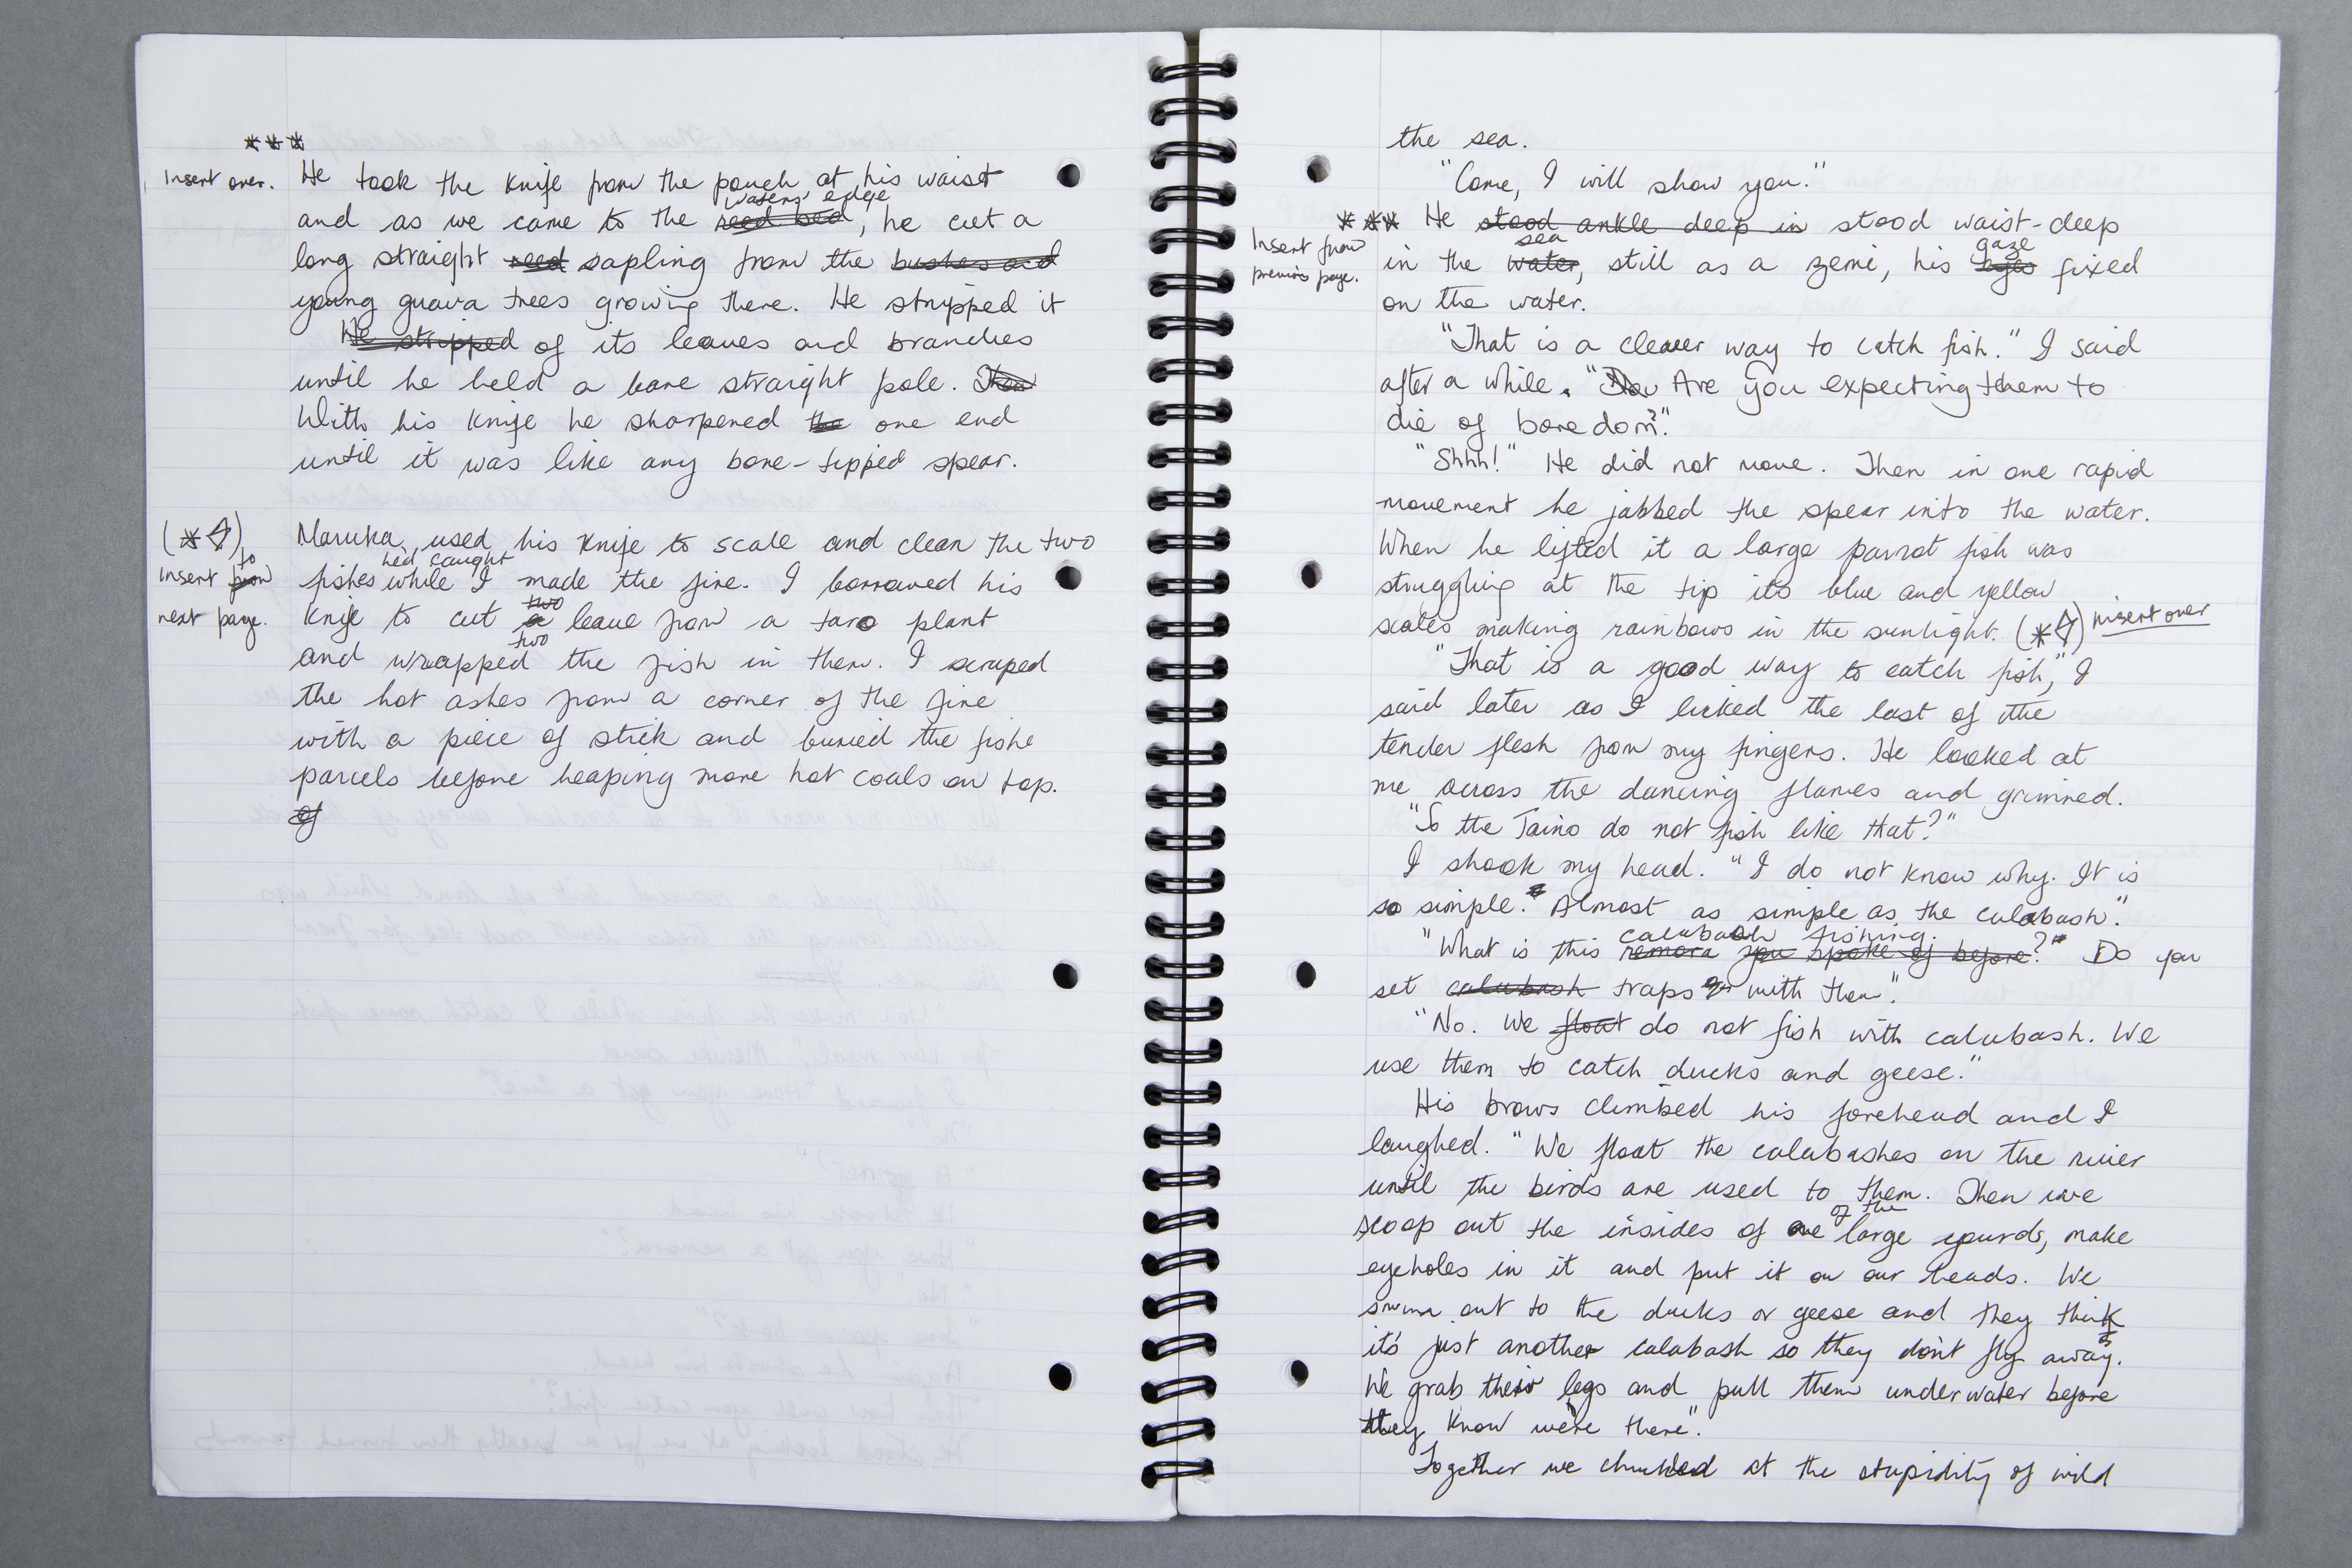 ***
Insert over. He took the knife from the pouch at his waist
waters' edge
and as we came to the reed bed, he cut a
long straight reed sapling from the bushes and
young guava trees growing there. He stripped it
He stripped of its leaves and branches
until he held a bare straight pole. Then
With his knife he sharpened the one end
until it was like any bone-tipped spear.
(*◊) Maruka used his knife to scale and clean the two
to he'd caught
insert from fishes while I made the fire. I borrowed his
two
next page. knife to cut a leave from a taro plant
two
and wrapped the fish in them. I scraped
the hot ashes from a corner of the fire
with a piece of stick and buried the fishe
parcels before heaping more hot coals on top.
of
the sea.
"Come, I will show you."
*** He stood ankle deep in stood waist-deep
Insert from sea gaze
previous page. in the water, still as a zemi, his eyes fixed
on the water.
"That is a clever way to catch fish." I said
after a while. "No Are you expecting them to
die of boredom?"
"Shhh!" He did not move. Then in one rapid
movement he jabbed the spear into the water.
When he lifted it a large parrot fish was
struggling at the tip its blue and yellow
scales making rainbows in the sunlight. (*◊) insert over
"That is a good way to catch fish," I
said later as I licked the last of the
tender flesh from my fingers. He looked at
me across the dancing flames and grinned.
"So the Taino do not fish like that?"
I shook my head. "I do not know why. It is
so simple. Almost as simple as the calabash."
calabash fishing.
"What is this remora you spoke of before?" Do you
set calabash traps with them".
"No. We float do not fish with calabash. We
use them to catch ducks and geese."
His brows climbed his forehead and I
laughed. "We float the calabashes on the river
until the birds are used to them. Then we
of the
scoop out the insides of one large gourds, make
eyeholes in it and put it on our heads. We
swim out to the ducks or geese and they think
it's just another calabash so they don't fly away.
We grab their legs and pull them underwater before
they know we're there".
Together we chuckled at the stupidity of wild